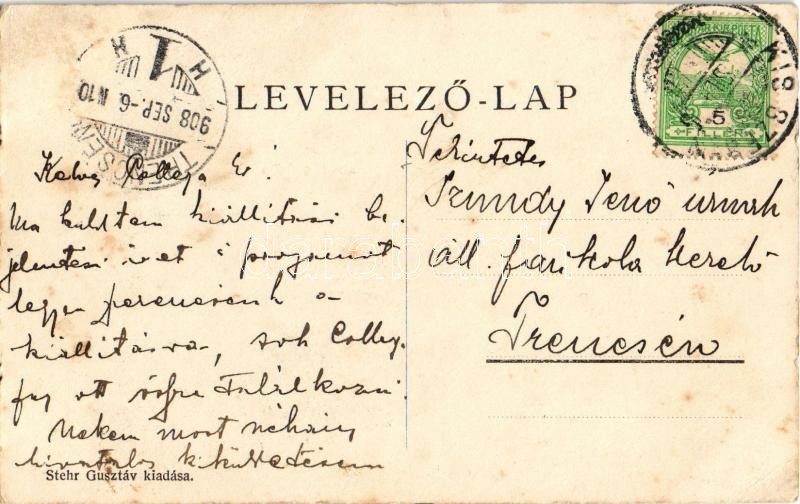 LEVELEZŐ-LAP
TRENCSÉN
908 SEP.-6. N10
1
MAGYAR KIR. POSTA
5
FILLÉR
Kedves Collega Úr!
Ma küldtem kiállítási be-
jelentési ívet s programot
legyen
kiállításra, sok Colle-
ga ott fog találkozni.
Nekem most néhány
hivatalos kiküldetésem
Tekintetes
Szundy Jenő urnak
áll. faiskola kezelő
Trencsén
Stehr Gusztáv kiadása.